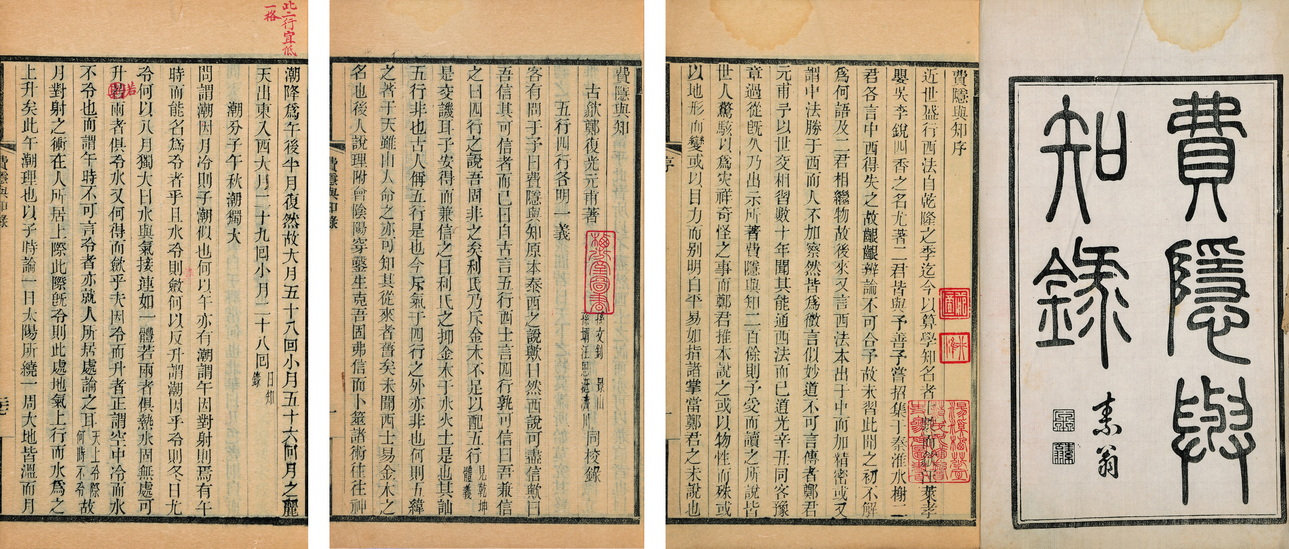 費隱與
知錄
素翁
費隱與知序
近世盛行西法自乾隆之季迄今以算學知名者
嬰吳李銳四香之名尤著二君皆與予善予嘗招集于秦淮水榭二
君各言中西得失之故齦齦辨論不可合予故未習此聞之初不解
爲何語及二君相繼物故後來又言西法本出于中而加精密或又
謂中法勝于西而人不加察然皆爲微言似妙道不可言傳者鄭君
元甫予以世交相習數十年聞其能通西法而已道光辛丑同客豫
章過從旣久乃出示所著費隱與知二百餘則予受而讀之所說皆
世人驚駭以爲灾祥奇怪之事而鄭君推本說之或以物性而殊或
以地形而變或以目力而別明白平易如指諸掌當鄭君之未說也
費隱與知
古歙鄭復光元甫著
同校錄
五行四行各明一義
客有問于予曰費隱與知原本泰西之說歟曰然西說可盡信歟曰
吾信其可信者而已曰自古言五行西士言四行孰可信曰吾兼信
之曰四行之說吾固非之矣利氏乃斥金木不足以配五行見乾坤體義
是交譏耳子安得而兼信之曰利氏之抑金木于水火土是也其訕
五行非也古人偁五行是也今斥氣于四行之外亦非也何則五緯
之著于天雖由人命之亦可知其從來者舊矣未聞西士易金木之
名也後人說理附會陰陽穿鑿生克吾固弗信而卜筮諸術往往神
此二行宜低一格
潮降爲午後半月復然故大月五十八回小月五十六回月之麗
天出東入西大月二十九回小月二十八回日知錄
潮分子午秋潮獨大
問謂潮因月冷則子潮假也何以午亦有潮謂午因對射則焉有午
時而能名爲冷者乎且水冷則斂何以反升謂潮因乎冷則冬日尤
冷何以八月獨大曰水與氣接連如一體若兩者俱熱水固無處可
升若兩者俱冷水又何得而斂乎夫因冷而升者正謂空中冷而水
不冷也而謂午時不可言冷者亦就人所居處論之耳天上冷際何時不冷故
月對射之衝在人所居上際此際旣冷則此處地氣上行而水爲之
上升矣此午潮理也以子時論一日太陽所纏一周大地皆溫而月